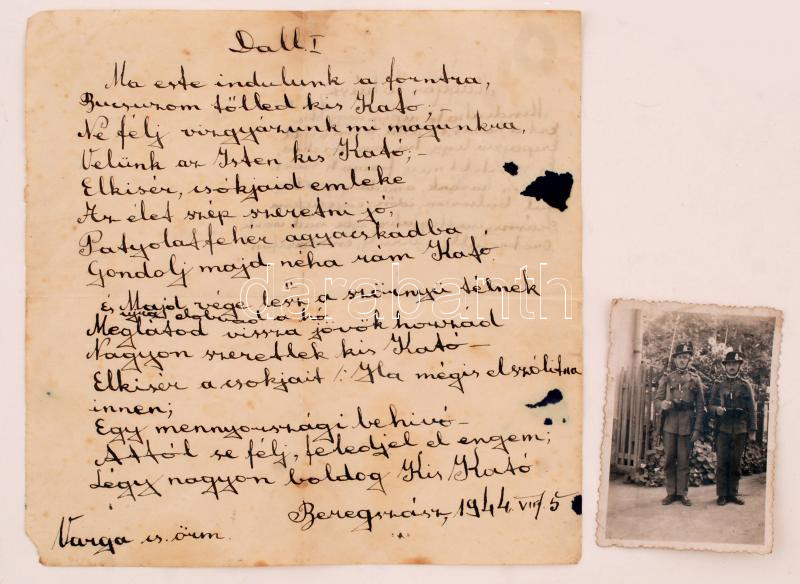 Dall I
Ma este indulunk a forntra,
Bucsuzom tölled kis Kató;-
Ne félj vizgyázunk mi magunkra,
Velünk az Isten kis Kató;-
Elkisér, csókjaid emléke
Az élet szép szeretni jó,
Patyolatfehér ágyacskádba
Gondolj majd néha rám Kató
és Majd vége lesz a szörnyü télnek
elolvad a hó
Meglátod vissza jövök hozzád
Nagyon szeretlek kis Kató-
Elkisér a csokjait /: Ha mégis elszólitna
innen;
Egy mennyországi behivó-
Attól se félj, feledjél el engem;
Légy nagyon boldog Kis Kató
Beregszász, 1944. VIII/5
Varga cs. örm.
darabanth